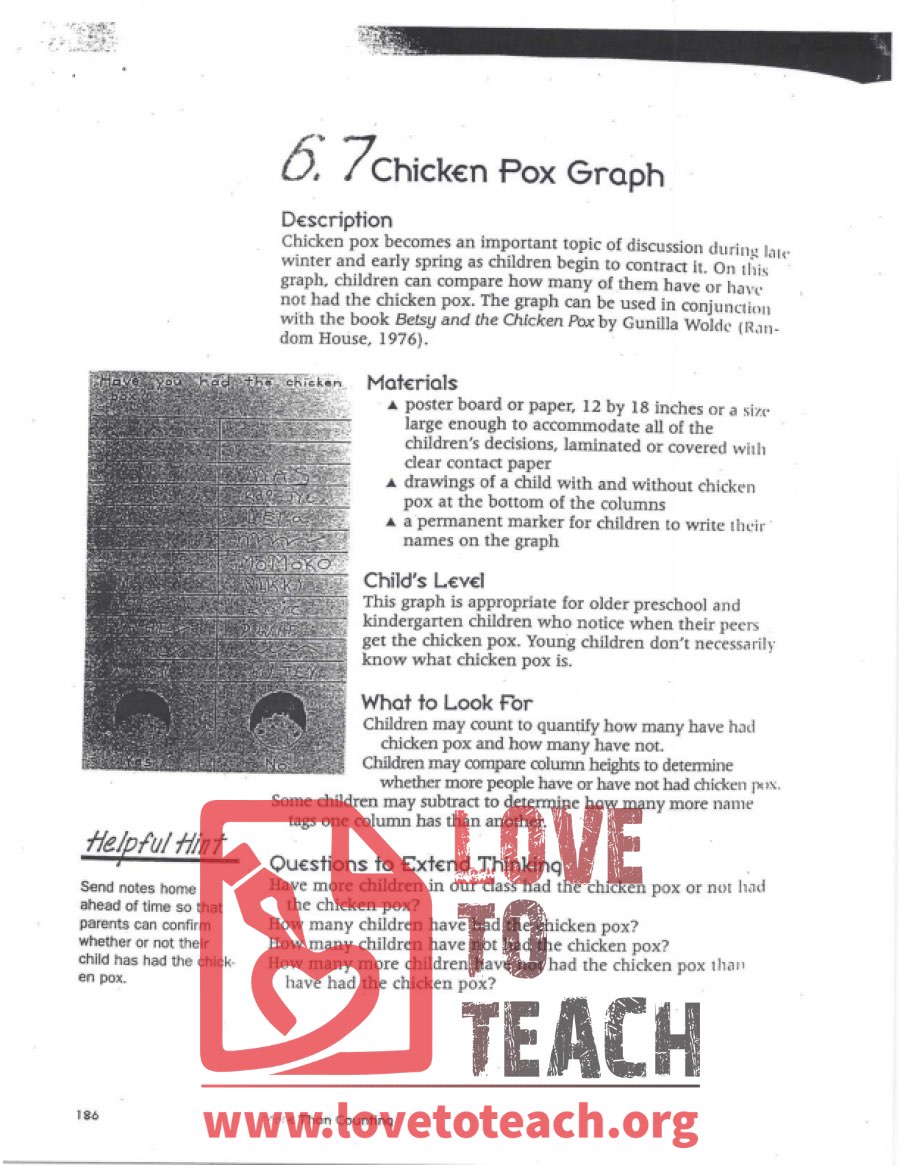 6.7 Chicken Pox Graph
Description
Chicken pox becomes an important topic of discussion during late
winter and early spring as children begin to contract it. On this
graph, children can compare how many of them have or have
not had the chicken pox. The graph can be used in conjunction
with the book Betsy and the Chicken Pox by Gunilla Wolde (Ran-
dom House, 1976).
Have you had the chicken
pox
MOMOKO
NIKKI
Yes
No
Materials
▲ poster board or paper, 12 by 18 inches or a size
large enough to accommodate all of the
children's decisions, laminated or covered with
clear contact paper
▲ drawings of a child with and without chicken
pox at the bottom of the columns
▲ a permanent marker for children to write their
names on the graph
Child's Level
This graph is appropriate for older preschool and
kindergarten children who notice when their peers
get the chicken pox. Young children don't necessarily
know what chicken pox is.
What to Look For
Children may count to quantify how many have had
chicken pox and how many have not.
Children may compare column heights to determine
whether more people have or have not had chicken pox.
Some children may subtract to determine how many more name
tags one column has than another.
Helpful Hint
Send notes home
ahead of time so that
parents can confirm
whether or not their
child has had the chick-
en pox.
Questions to Extend Thinking
Have more children in our class had the chicken pox or not had
the chicken pox?
How many children have had the chicken pox?
How many children have not had the chicken pox?
How many more children have not had the chicken pox than
have had the chicken pox?
LOVE
TO
TEACH
186
More Than Counting
www.lovetoteach.org